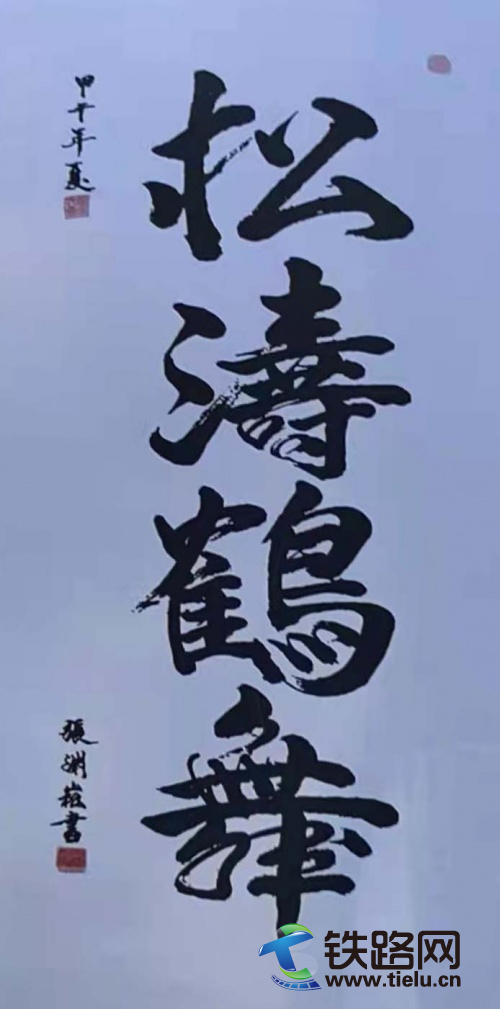 松濤鶴舞
甲午年夏
張渊菘書
铁路网
www.tielu.cn